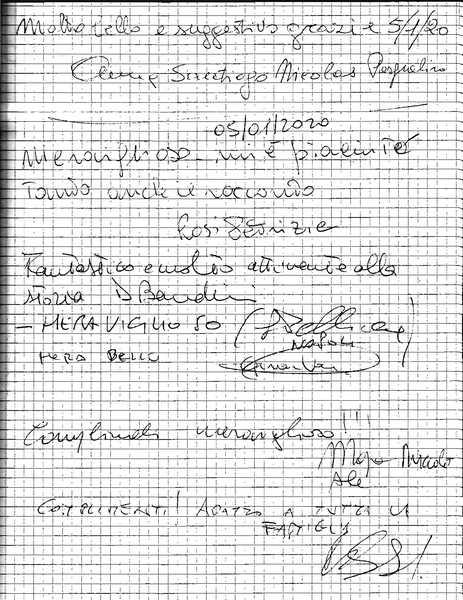 Molto bello e suggestivo grazie 5/1/20
Nicolas Pasqualino
05/01/2020
Meravigliosa mi è piaciuto
Tanto anche il racconto
Rosi
Fantastico e molto attinente alla
storia D Bandini
- MERAVIGLIOSO
NAPOLI
MERA BELLO
Complimenti meraviglioso!!!
Ale
COMPLIMENTI! ADATTO A TUTTA LA
FAMIGLIA